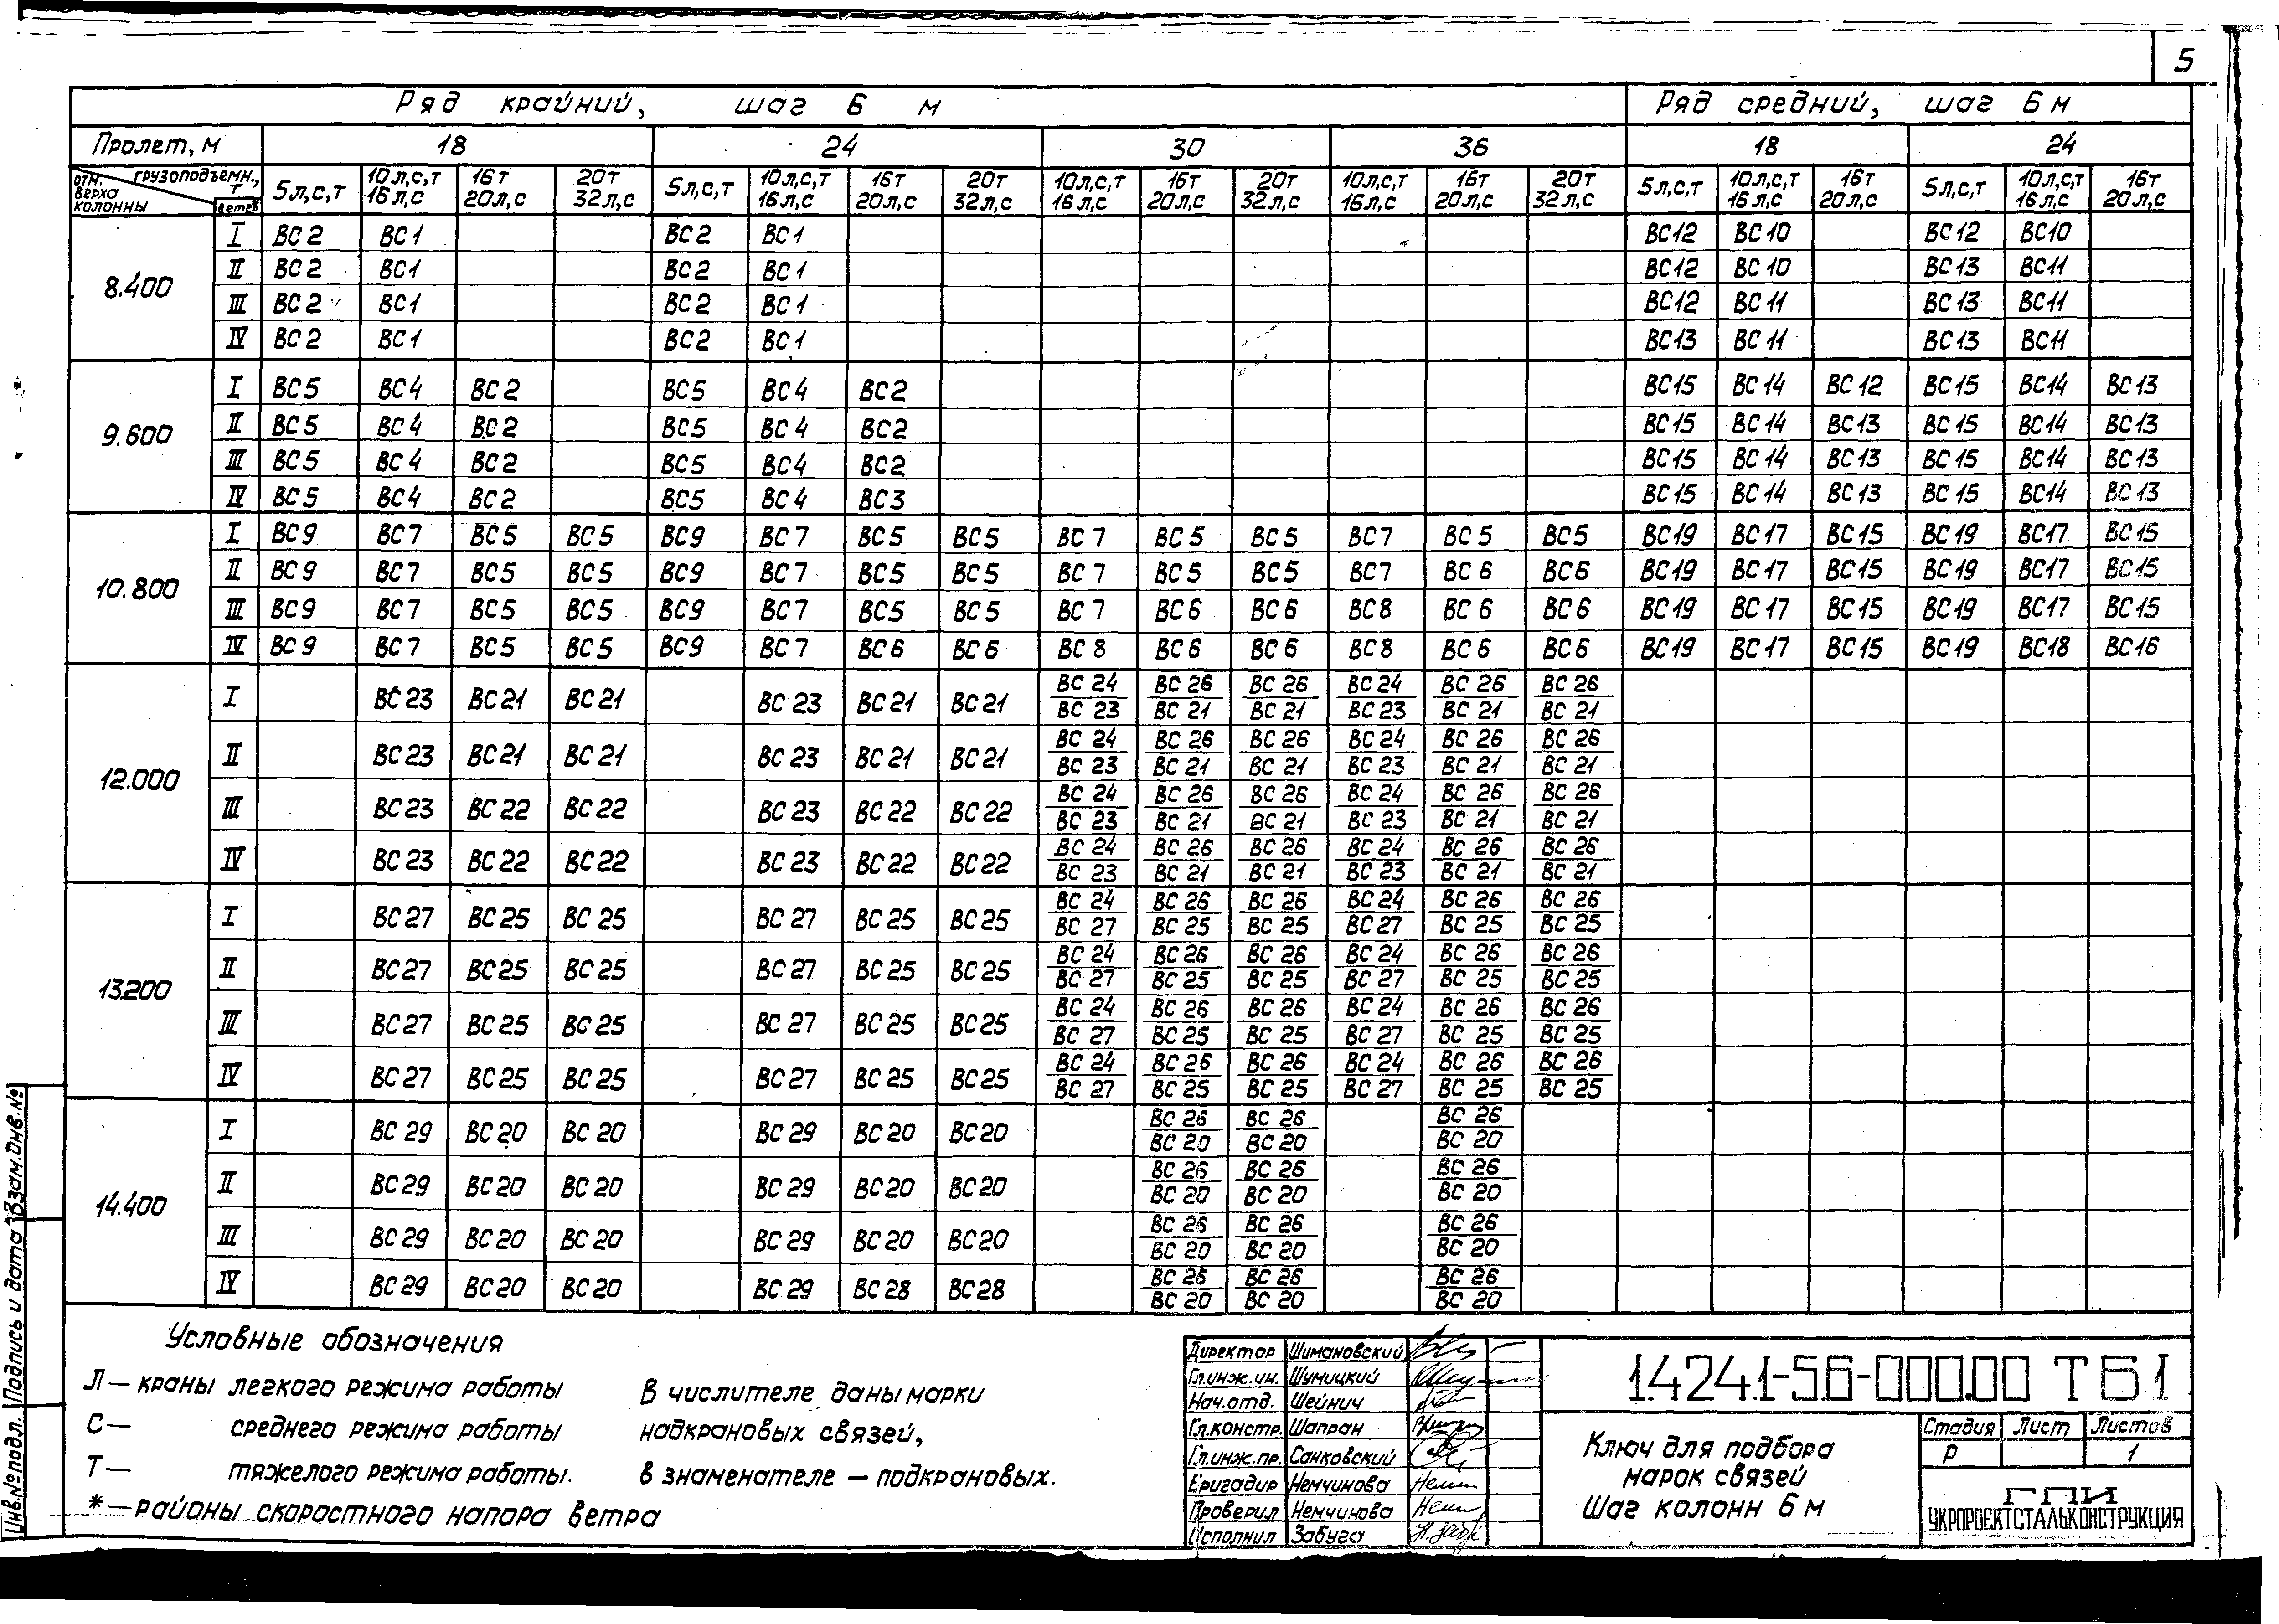 5
Ряд крайний, шаг 6 м Ряд средний, шаг 6 м
Пролет, м 18 24 30 36 18 24
отм. верха колонны грузоподъемн., т ветер 5л,с,т 10л,с,т 16л,с 16т 20л,с 20т 32л,с 5л,с,т 10л,с,т 16л,с 16т 20л,с 20т 32л,с 10л,с,т 16л,с 16т 20л,с 20т 32л,с 10л,с,т 16л,с 16т 20л,с 20т 32л,с 5л,с,т 10л,с,т 16л,с 16т 20л,с 5л,с,т 10л,с,т 16л,с 16т 20л,с
8.400
I ВС2 ВС1 ВС2 ВС1 ВС12 ВС10 ВС12 ВС10
II ВС2 ВС1 ВС2 ВС1 ВС12 ВС10 ВС13 ВС11
III ВС2 ВС1 ВС2 ВС1 ВС12 ВС11 ВС13 ВС11
IV ВС2 ВС1 ВС2 ВС1 ВС13 ВС11 ВС13 ВС11
9.600
I ВС5 ВС4 ВС2 ВС5 ВС4 ВС2 ВС15 ВС14 ВС12 ВС15 ВС14 ВС13
II ВС5 ВС4 ВС2 ВС5 ВС4 ВС2 ВС15 ВС14 ВС13 ВС15 ВС14 ВС13
III ВС5 ВС4 ВС2 ВС5 ВС4 ВС2 ВС15 ВС14 ВС13 ВС15 ВС14 ВС13
IV ВС5 ВС4 ВС2 ВС5 ВС4 ВС3 ВС15 ВС14 ВС13 ВС15 ВС14 ВС13
10.800
I ВС9 ВС7 ВС5 ВС5 ВС9 ВС7 ВС5 ВС5 ВС7 ВС5 ВС5 ВС7 ВС5 ВС5 ВС19 ВС17 ВС15 ВС19 ВС17 ВС15
II ВС9 ВС7 ВС5 ВС5 ВС9 ВС7 ВС5 ВС5 ВС7 ВС5 ВС5 ВС7 ВС6 ВС6 ВС19 ВС17 ВС15 ВС19 ВС17 ВС15
III ВС9 ВС7 ВС5 ВС5 ВС9 ВС7 ВС5 ВС5 ВС7 ВС6 ВС6 ВС8 ВС6 ВС6 ВС19 ВС17 ВС15 ВС19 ВС17 ВС15
IV ВС9 ВС7 ВС5 ВС5 ВС9 ВС7 ВС6 ВС6 ВС8 ВС6 ВС6 ВС8 ВС6 ВС6 ВС19 ВС17 ВС15 ВС19 ВС18 ВС16
12.000
ВС24 ВС26 ВС26 ВС24 ВС26 ВС26
I ВС23 ВС21 ВС21 ВС23 ВС21 ВС21
ВС23 ВС21 ВС21 ВС23 ВС21 ВС21
ВС24 ВС26 ВС26 ВС24 ВС26 ВС26
II ВС23 ВС21 ВС21 ВС23 ВС21 ВС21
ВС23 ВС21 ВС21 ВС23 ВС21 ВС21
ВС24 ВС26 ВС26 ВС24 ВС26 ВС26
III ВС23 ВС22 ВС22 ВС23 ВС22 ВС22
ВС23 ВС21 ВС21 ВС23 ВС21 ВС21
ВС24 ВС26 ВС26 ВС24 ВС26 ВС26
IV ВС23 ВС22 ВС22 ВС23 ВС22 ВС22
ВС23 ВС21 ВС21 ВС23 ВС21 ВС21
13.200
ВС24 ВС26 ВС26 ВС24 ВС26 ВС26
I ВС27 ВС25 ВС25 ВС27 ВС25 ВС25
ВС27 ВС25 ВС25 ВС27 ВС25 ВС25
ВС24 ВС26 ВС26 ВС24 ВС26 ВС26
II ВС27 ВС25 ВС25 ВС27 ВС25 ВС25
ВС27 ВС25 ВС25 ВС27 ВС25 ВС25
ВС24 ВС26 ВС26 ВС24 ВС26 ВС26
III ВС27 ВС25 ВС25 ВС27 ВС25 ВС25
ВС27 ВС25 ВС25 ВС27 ВС25 ВС25
ВС24 ВС26 ВС26 ВС24 ВС26 ВС26
IV ВС27 ВС25 ВС25 ВС27 ВС25 ВС25
ВС27 ВС25 ВС25 ВС27 ВС25 ВС25
14.400
ВС26 ВС26 ВС26
I ВС29 ВС20 ВС20 ВС29 ВС20 ВС20
ВС20 ВС20 ВС20
ВС26 ВС26 ВС26
II ВС29 ВС20 ВС20 ВС29 ВС20 ВС20
ВС20 ВС20 ВС20
ВС26 ВС26 ВС26
III ВС29 ВС20 ВС20 ВС29 ВС20 ВС20
ВС20 ВС20 ВС20
ВС26 ВС26 ВС26
IV ВС29 ВС20 ВС20 ВС29 ВС28 ВС28
ВС20 ВС20 ВС20
Условные обозначения
Л — краны легкого режима работы
С — среднего режима работы
Т — тяжелого режима работы.
* — районы скоростного напора ветра
В числителе даны марки
надкрановых связей,
в знаменателе — подкрановых.
Директор Шимановский
Гл.инж.ин. Шумицкий
Нач.отд. Шейнич
Гл.констр. Шапран
Гл.инж.пр. Санковский
Бригадир Немчинова
Проверил Немчинова
Исполнил Забуга
1.424.1-5.6-000.00 ТБ1
Ключ для подбора
марок связей
Шаг колонн 6 м
Стадия Лист Листов
Р 1
ГПИ
УКРПРОЕКТСТАЛЬКОНСТРУКЦИЯ
Инв.№подл. Подпись и дата Взам.инв.№